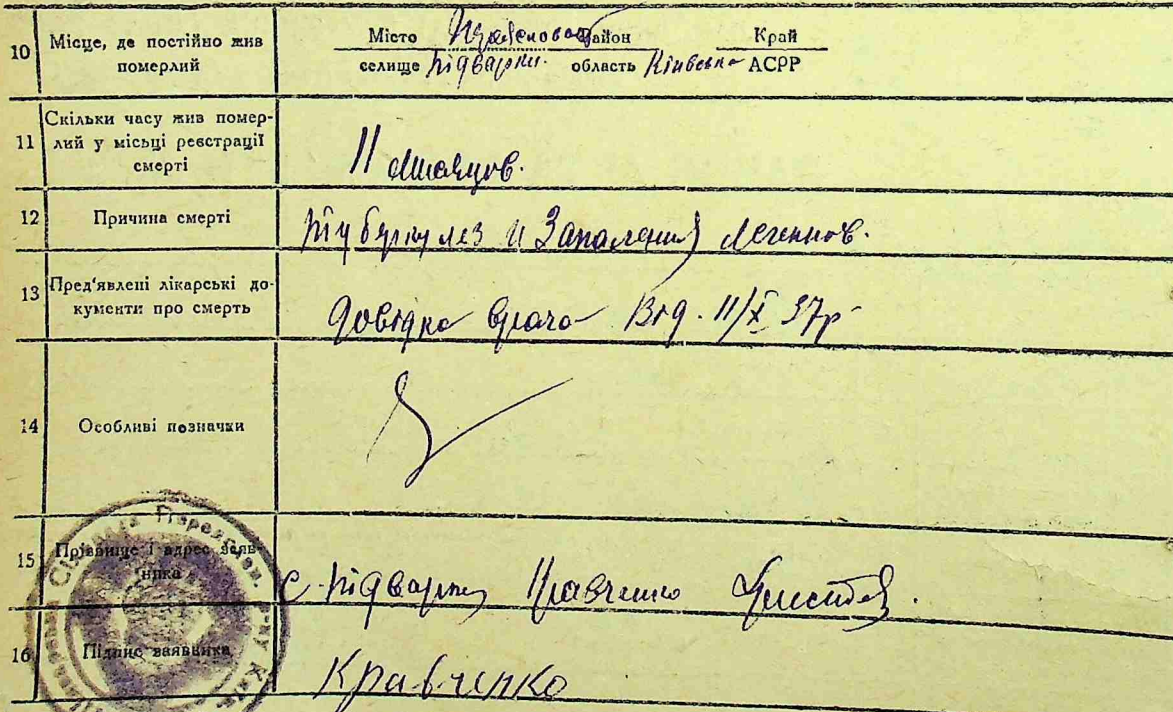 10 Місце, де постійно жив
померлий
Місто Район Край
селище Підварки. область Київська АСРР
11 Скільки часу жив помер-
лий у місьці реєстрації
смерті
11 місяцов.
12 Причина смерті
Тубуркулез и Запаления Легеннов.
13 Пред'явлені лікарські до-
кументи про смерть
Довідка Врача Від. 11/X 37р
14 Особливі позначки
15 Прізвище і адрес заяв-
ника
с. Підварки Кравченко
16 Підпис заявника
Кравченко